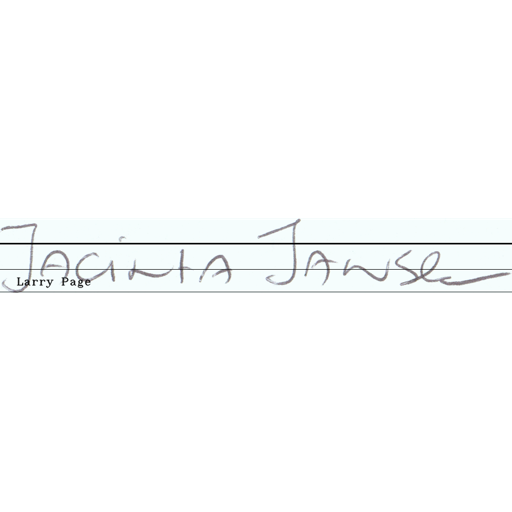 Jacinta Jansen
Larry Page